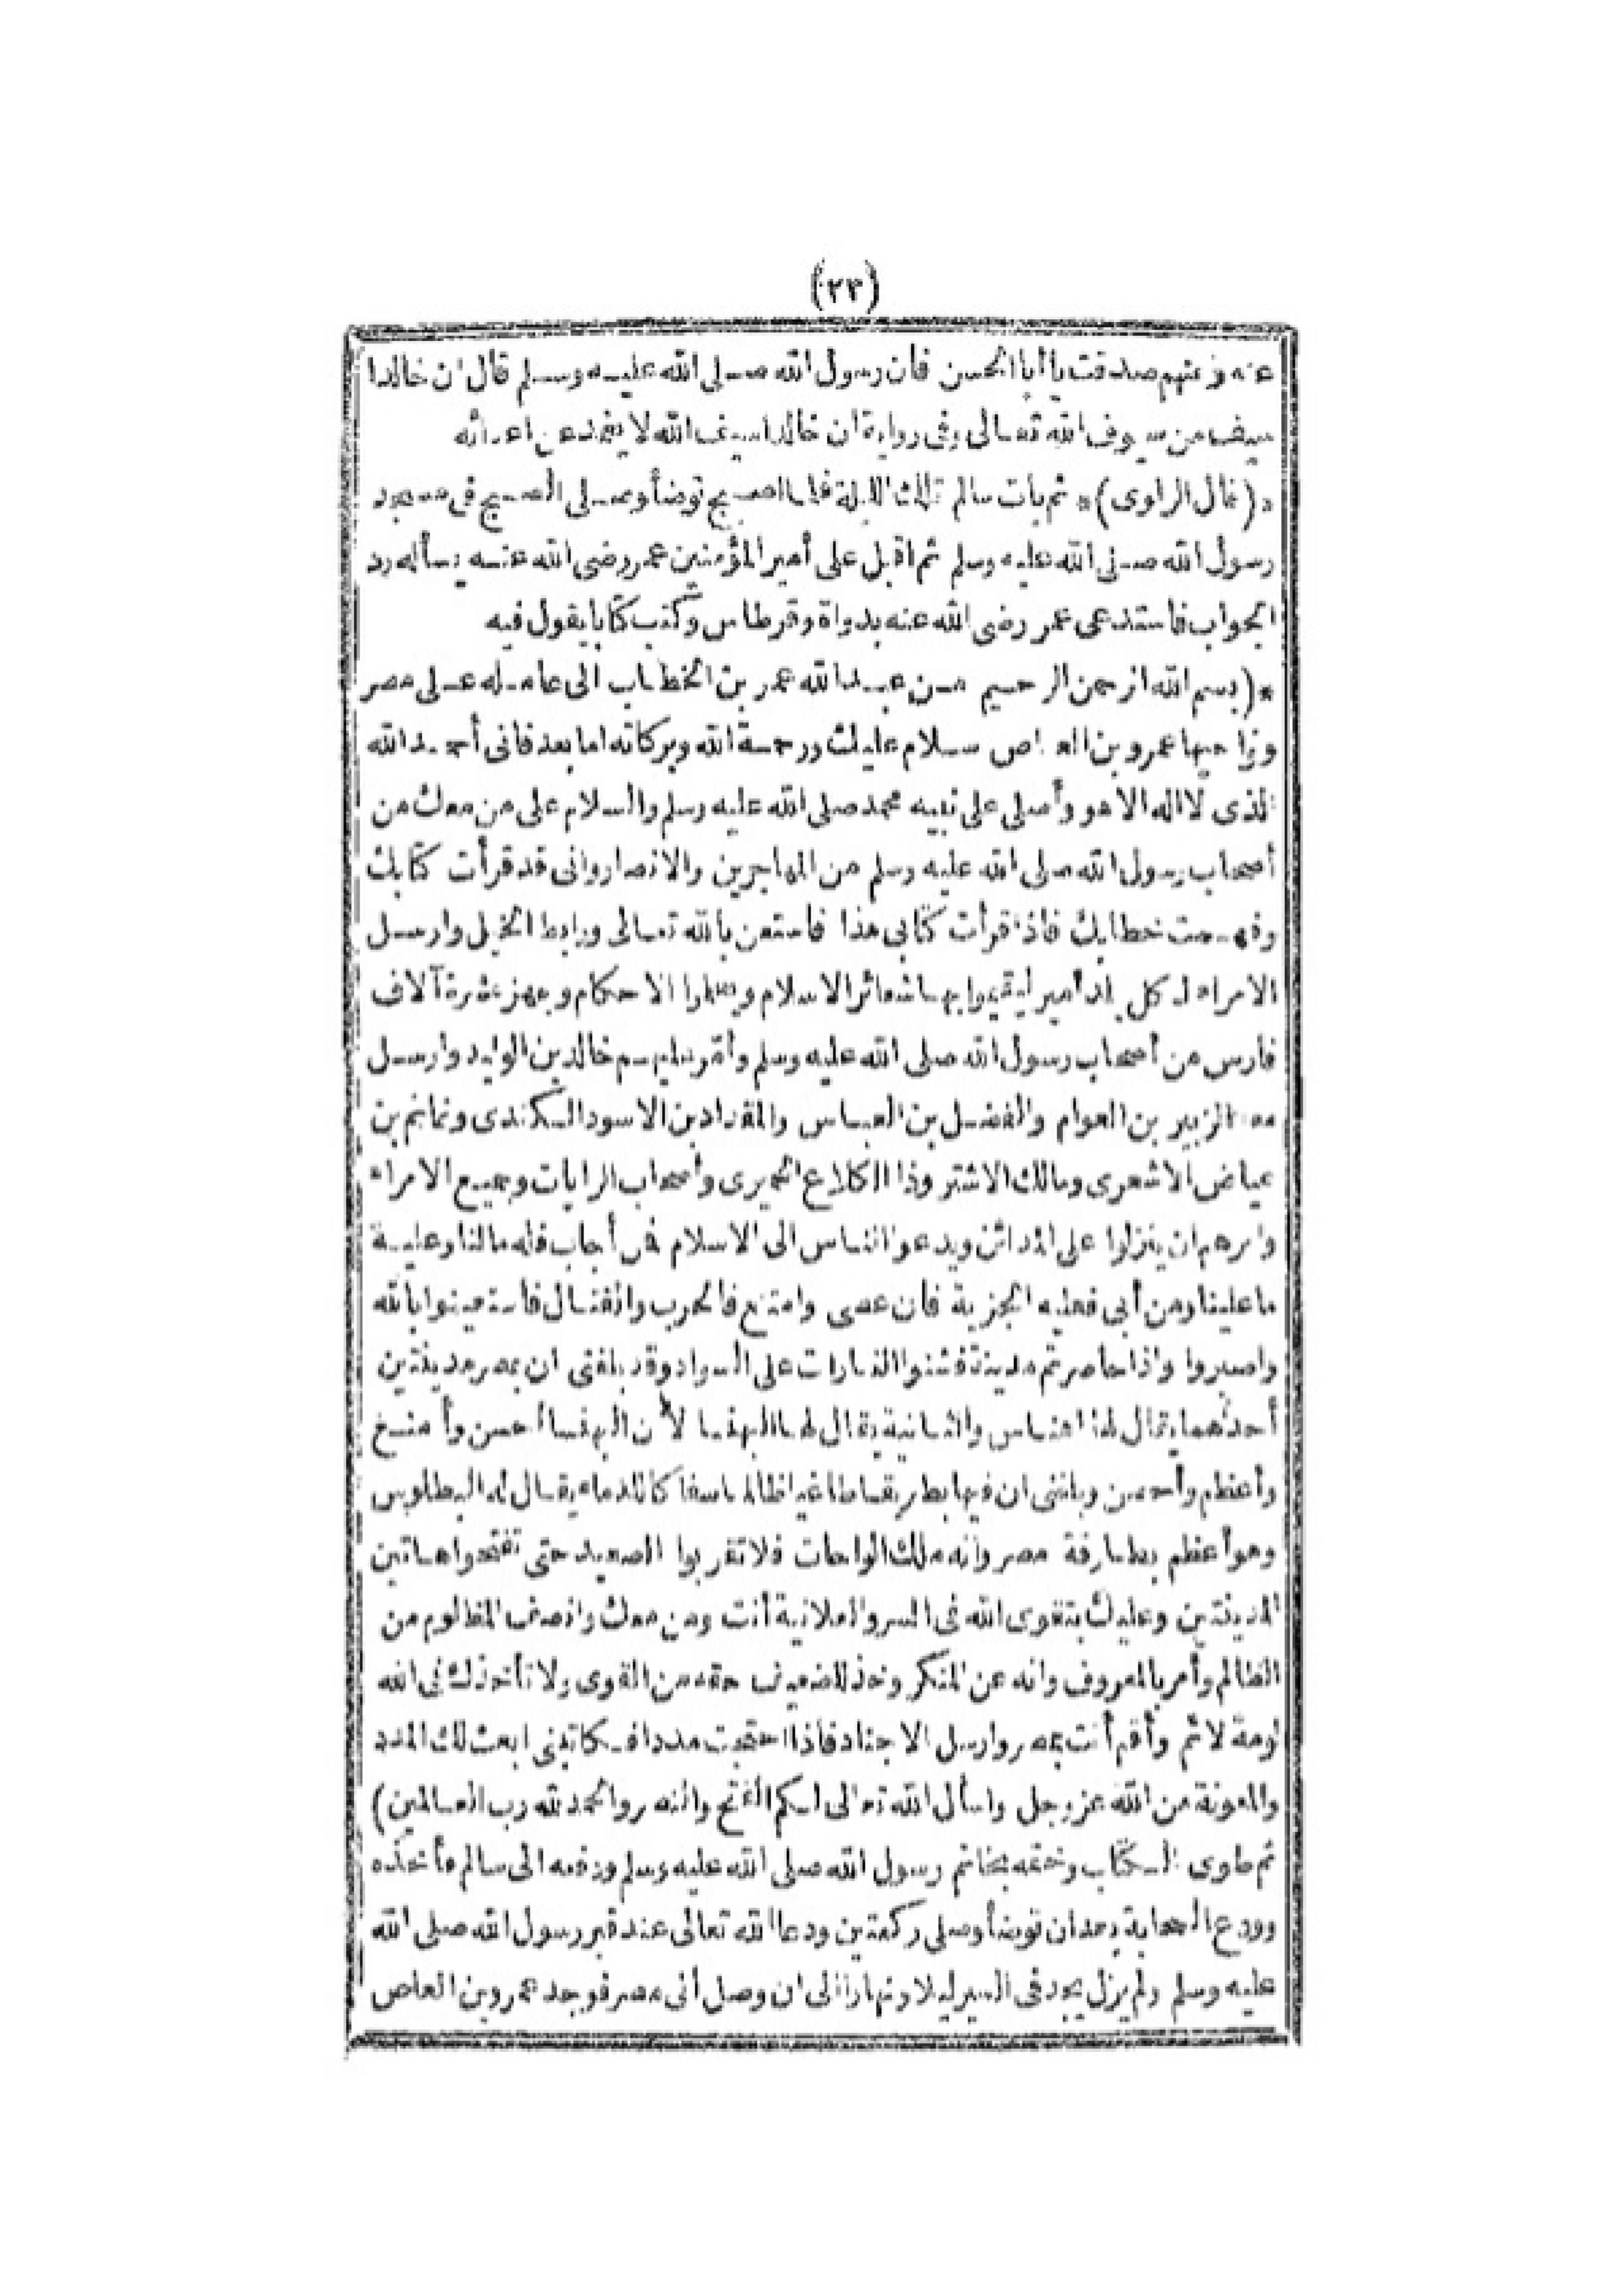 (٢٣)
عنه وعنهم صدقت يا أبا الحسن فان رسول الله صلى الله عليه وسلم قال ان خالدا
سيف من سيوف الله تعالى وفى رواية ان خالدا سيف الله لا يغمد عن اعدائه
*(قال الراوى)* ثم بات سالم تلك الليلة فلما اصبح توضأ وصلى الصبح فى مسجد
رسول الله صلى الله عليه وسلم ثم اقبل على أمير المؤمنين عمر رضى الله عنه يسأله رد
الجواب فاستدعى عمر رضى الله عنه بدواة وقرطاس وكتب كتابا يقول فيه
*(بسم الله الرحمن الرحيم من عبد الله عمر بن الخطاب الى عامله على مصر
ونواحيها عمرو بن العاص سلام عليك ورحمة الله وبركاته اما بعد فانى أحمد الله
الذى لا اله الا هو وأصلى على نبيه محمد صلى الله عليه وسلم والسلام على من معك من
أصحاب رسول الله صلى الله عليه وسلم من المهاجرين والانصار وانى قد قرأت كتابك
وفهمت خطابك فاذا قرأت كتابى هذا فاستعن بالله تعالى واربط الخيل وارسل
الامراء لكل بلد أمير ليقيموا بها شعائر الاسلام ويعلموا الاحكام وجهز عشرة آلاف
فارس من أصحاب رسول الله صلى الله عليه وسلم وأمر عليهم خالد بن الوليد وارسل
معه الزبير بن العوام والفضل بن العباس والمقداد بن الاسود الكندى وغانم بن
عياض الاشعرى ومالك الاشتر وذا الكلاع الحميرى وأصحاب الرايات وجميع الامراء
وامرهم ان ينزلوا على المدائن ويدعوا الناس الى الاسلام فمن أجاب فله مالنا وعليه
ما علينا ومن أبى فعليه الجزية فان عصى وامتنع فالحرب والقتال فاستعينوا بالله
واصبروا واذا حاصرتم مدينة فشنوا الغارات على السواد وقد بلغنى ان بمصر مدينتين
أحدهما يقال لها اهناس والثانية يقال لها البهنسا لأن البهنسا أحسن وأمنع
وأعظم وأحصن وبلغنى ان فيها بطريقا طاغيا ظالما سفاكا للدماء يقال له البطلوس
وهو أعظم بطارقة مصر وانه ملك الواحات فلا تقربوا الصعيد حتى تفتحوا هاتين
المدينتين وعليك بتقوى الله فى السر والعلانية أنت ومن معك وانصف المظلوم من
الظالم وأمر بالمعروف وانه عن المنكر وخذ للضعيف حقه من القوى ولا تأخذك فى الله
لومة لائم وأقم أنت بمصر وارسل الاجناد فاذا احتجت مددا فكاتبنى ابعث لك المدد
والمعونة من الله عز وجل واسأل الله تعالى لكم الفتح والنصر والحمد لله رب العالمين)
ثم طوى الكتاب وختمه بخاتم رسول الله صلى الله عليه وسلم ودفعه الى سالم فأخذه
وودع الصحابة بعد ان توضأ وصلى ركعتين ودعا الله تعالى عند قبر رسول الله صلى الله
عليه وسلم ولم يزل يجد فى السير ليلا ونهارا الى ان وصل الى مصر فوجد عمرو بن العاص